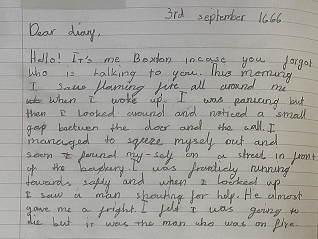 3rd september 1666
Dear diary,
Hello! It's me Boxton incase you forgot
who is talking to you. This morning
I saw flaming fire all around me
when I woke up. I was panicing but
then I looked around and noticed a small
gap between the door and the wall. I
managed to sqeeze myself out and
soon I found my-self on a street in front
of the bakery. I was franticly running
towards safty and when I looked up
I saw a man shouting for help. He almost
gave me a fright. I felt I was going to
die but it was the man who was on fire.